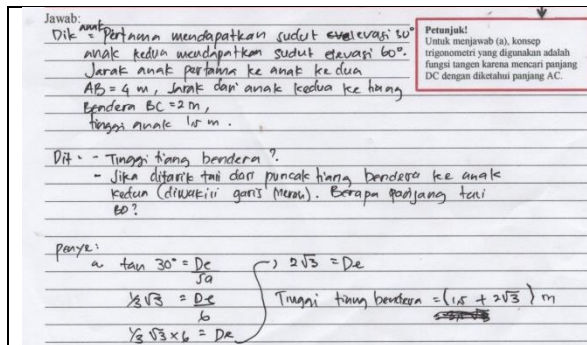 Jawab:
Dik = anak Pertama mendapatkan sudut elevasi 30°
anak kedua mendapatkan sudut elevasi 60°.
Jarak anak pertama ke anak ke dua
AB = 4 m, Jarak dari anak kedua ke tiang
Bendera BC = 2 m,
tinggi anak 1,5 m.
Petunjuk!
Untuk menjawab (a), konsep
trigonometri yang digunakan adalah
fungsi tangen karena mencari panjang
DC dengan diketahui panjang AC.
Dit : - Tinggi tiang bendera ?.
- Jika ditarik tali dari puncak tiang bendera ke anak
kedua (diwakili garis merah). Berapa panjang tali
BD?
penye:
a tan 30° = De
1/3 √3 = De
6
1/3 √3 x 6 = De
2√3 = De
Tinggi tiang bendera = (1,5 + 2√3) m